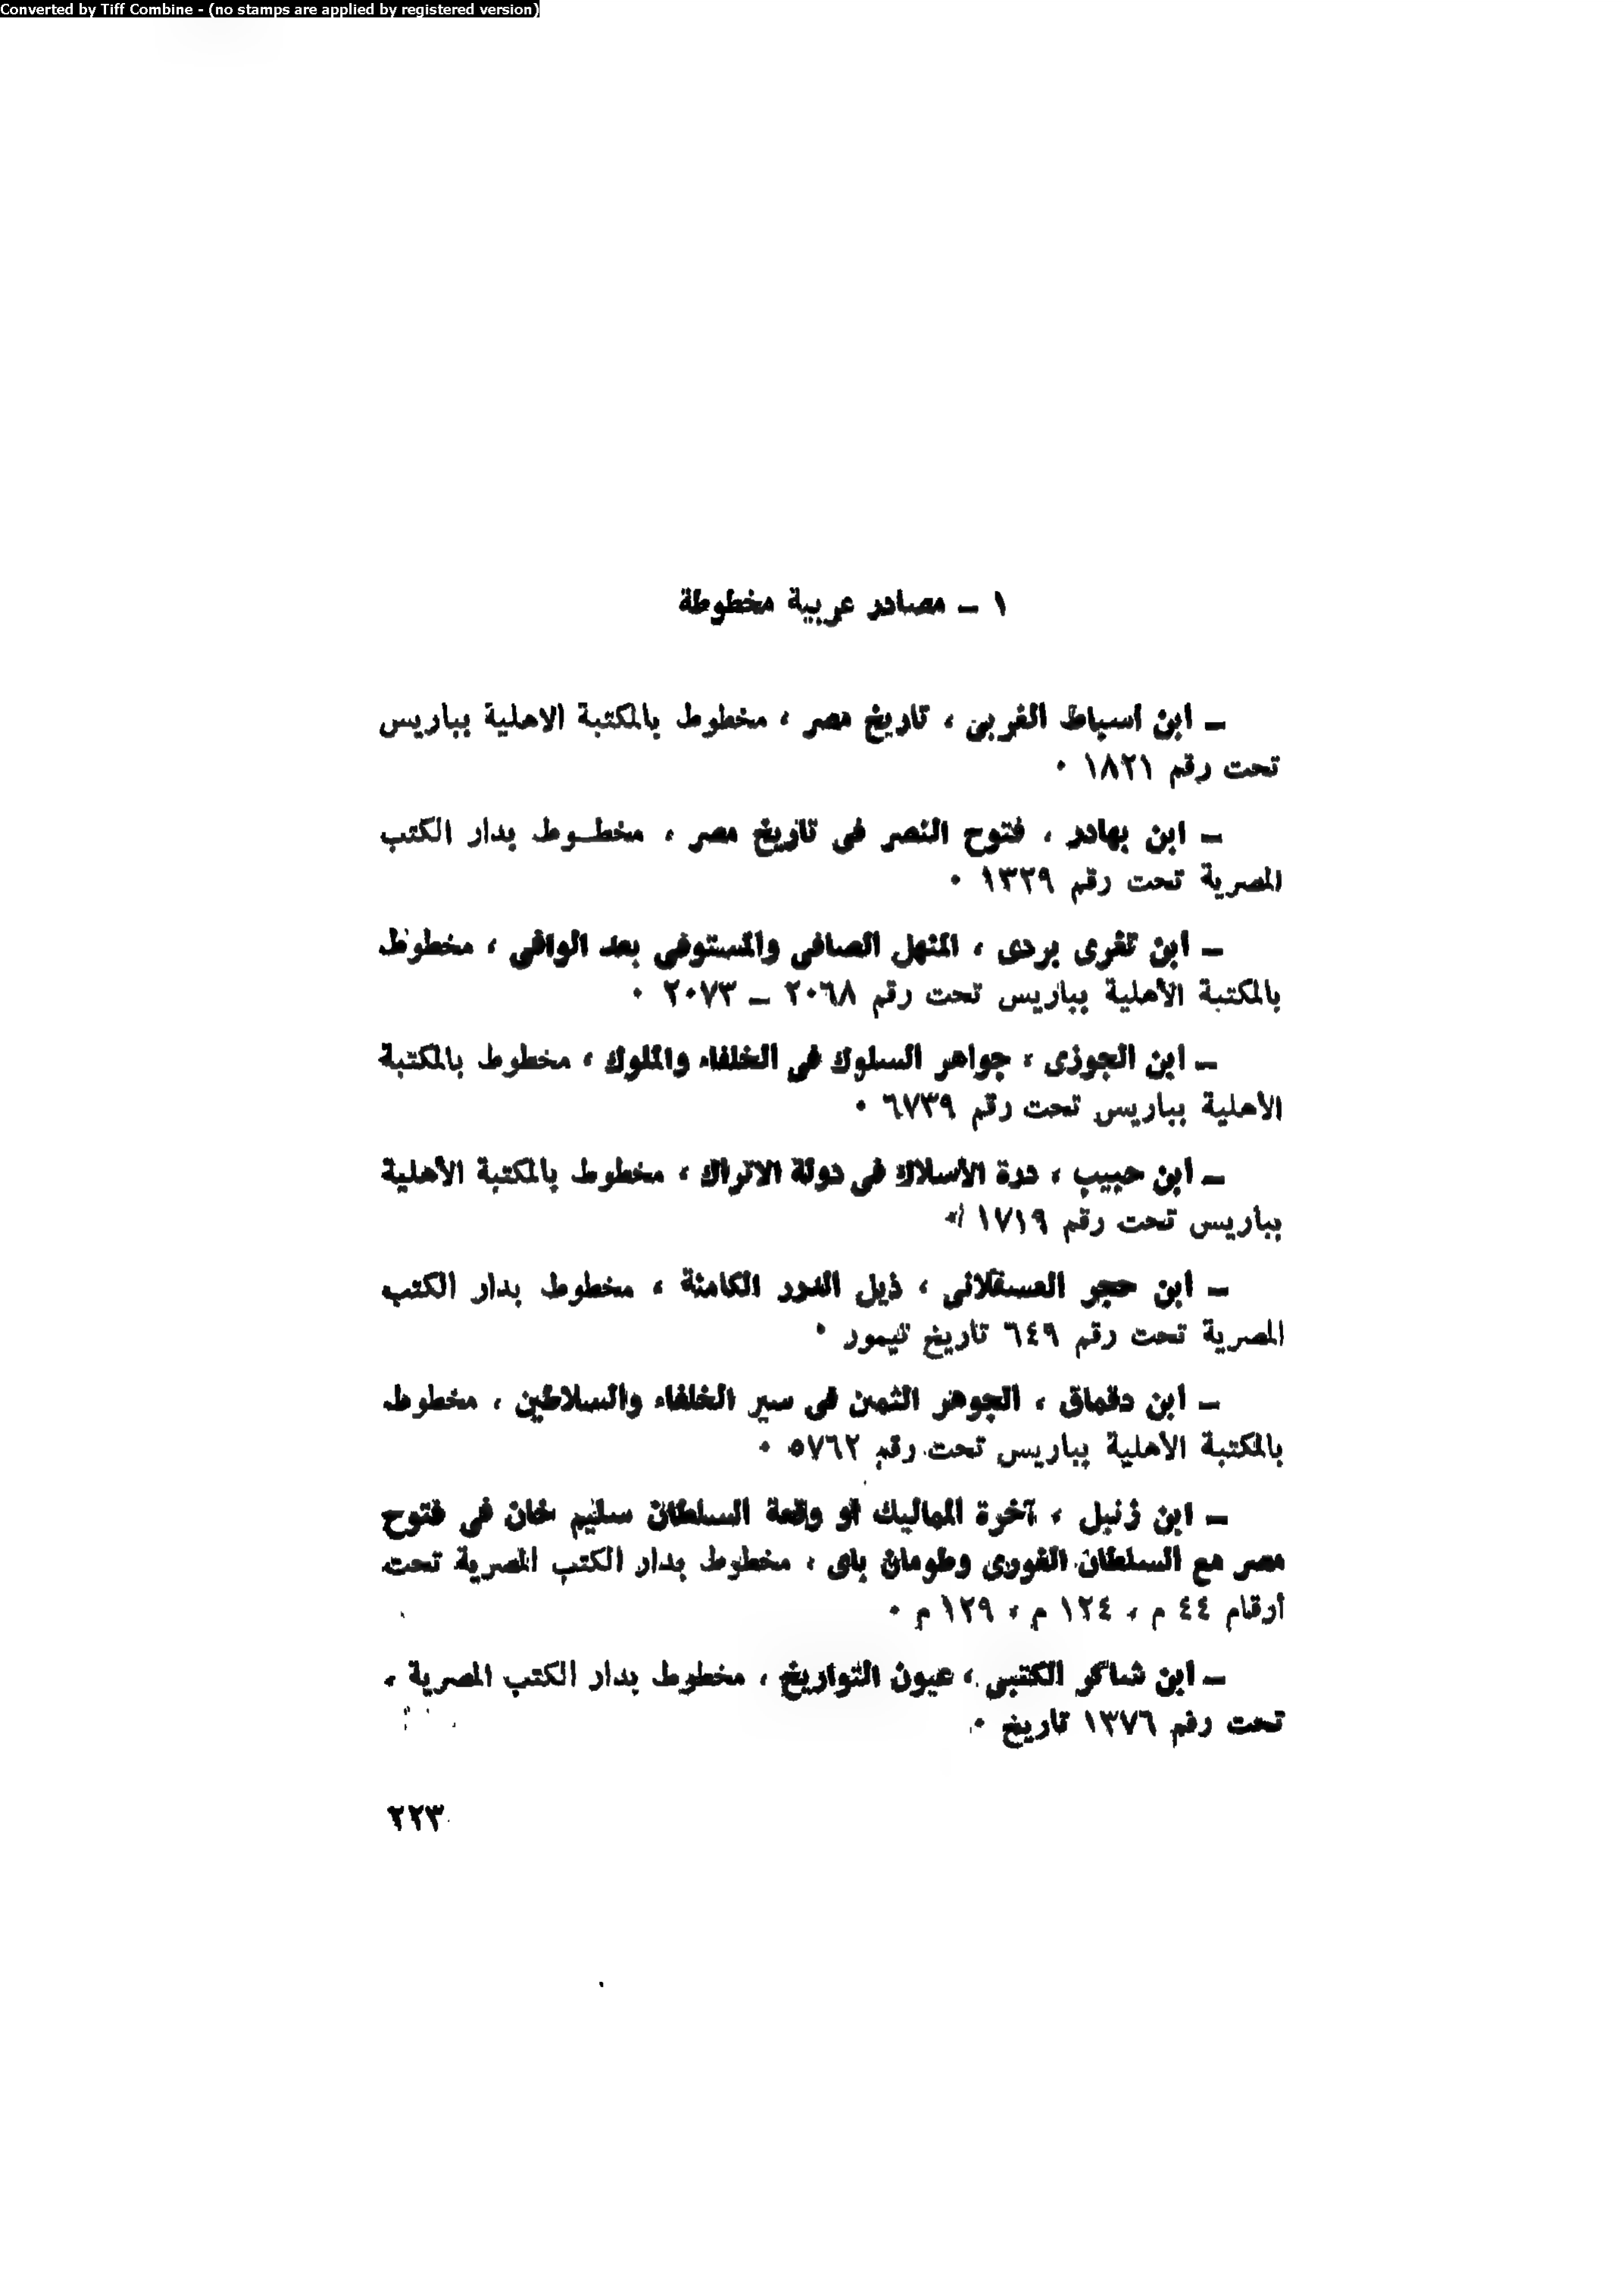 Converted by Tiff Combine - (no stamps are applied by registered version)
١ – مصادر عربية مخطوطة
– ابن اسباط الغربى ، تاريخ مصر ، مخطوط بالمكتبة الاهلية بباريس
تحت رقم ١٨٢١ ٠
– ابن بهادر ، فتوح النصر فى تاريخ مصر ، مخطـوط بدار الكتب
المصرية تحت رقم ١٣٣٩ ٠
– ابن تغرى بردى ، المنهل الصافى والمستوفى بعد الوافى ، مخطوط
بالمكتبة الأهلية بباريس تحت رقم ٢٠٦٨ – ٢٠٧٣ ٠
– ابن الجوزى ، جواهر السلوك فى الخلفاء والملوك ، مخطوط بالمكتبة
الأهلية بباريس تحت رقم ٦٧٣٩ ٠
– ابن حبيب ، درة الأسلاك فى دولة الاتراك ، مخطوط بالمكتبة الأهلية
بباريس تحت رقم ١٧١٩ ٠
– ابن حجر العسقلانى ، ذيل الدرر الكامنة ، مخطوط بدار الكتب
المصرية تحت رقم ٦٤٩ تاريخ تيمور ٠
– ابن دقماق ، الجوهر الثمن فى سير الخلفاء والسلاطين ، مخطوط
بالمكتبة الأهلية بباريس تحت رقم ٥٧٦٢ ٠
– ابن زنبل ، آخرة المماليك او وقعة السلطان سليم خان فى فتوح
مصر مع السلطان الغورى وطومان باى ، مخطوط بدار الكتب المصرية تحت
أرقام ٤٤ م ، ١٢٤ م ، ١٢٩ م ٠
– ابن شاكر الكتبى ، عيون التواريخ ، مخطوط بدار الكتب المصرية ،
تحت رقم ١٣٧٦ تاريخ ٠
٢٢٣